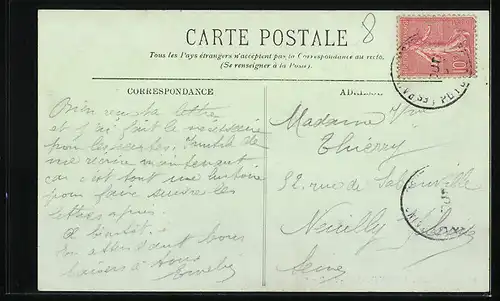 8
CARTE POSTALE
Tous les Pays étrangers n'acceptent pas la Correspondance au recto.
(Se renseigner à la Poste).
CORRESPONDANCE
Bien reçu ta lettre
et j'ai fait le nécessaire
pour les cartes. Inutile de
me écrire maintenant
car c'est tout une histoire
pour faire suivre les
lettres après.
A bientôt.
En attendant bons
baisers à tous
ADRESSE
Madame
Thierry
32, rue de Sablonville
Neuilly s/Seine
Seine
10